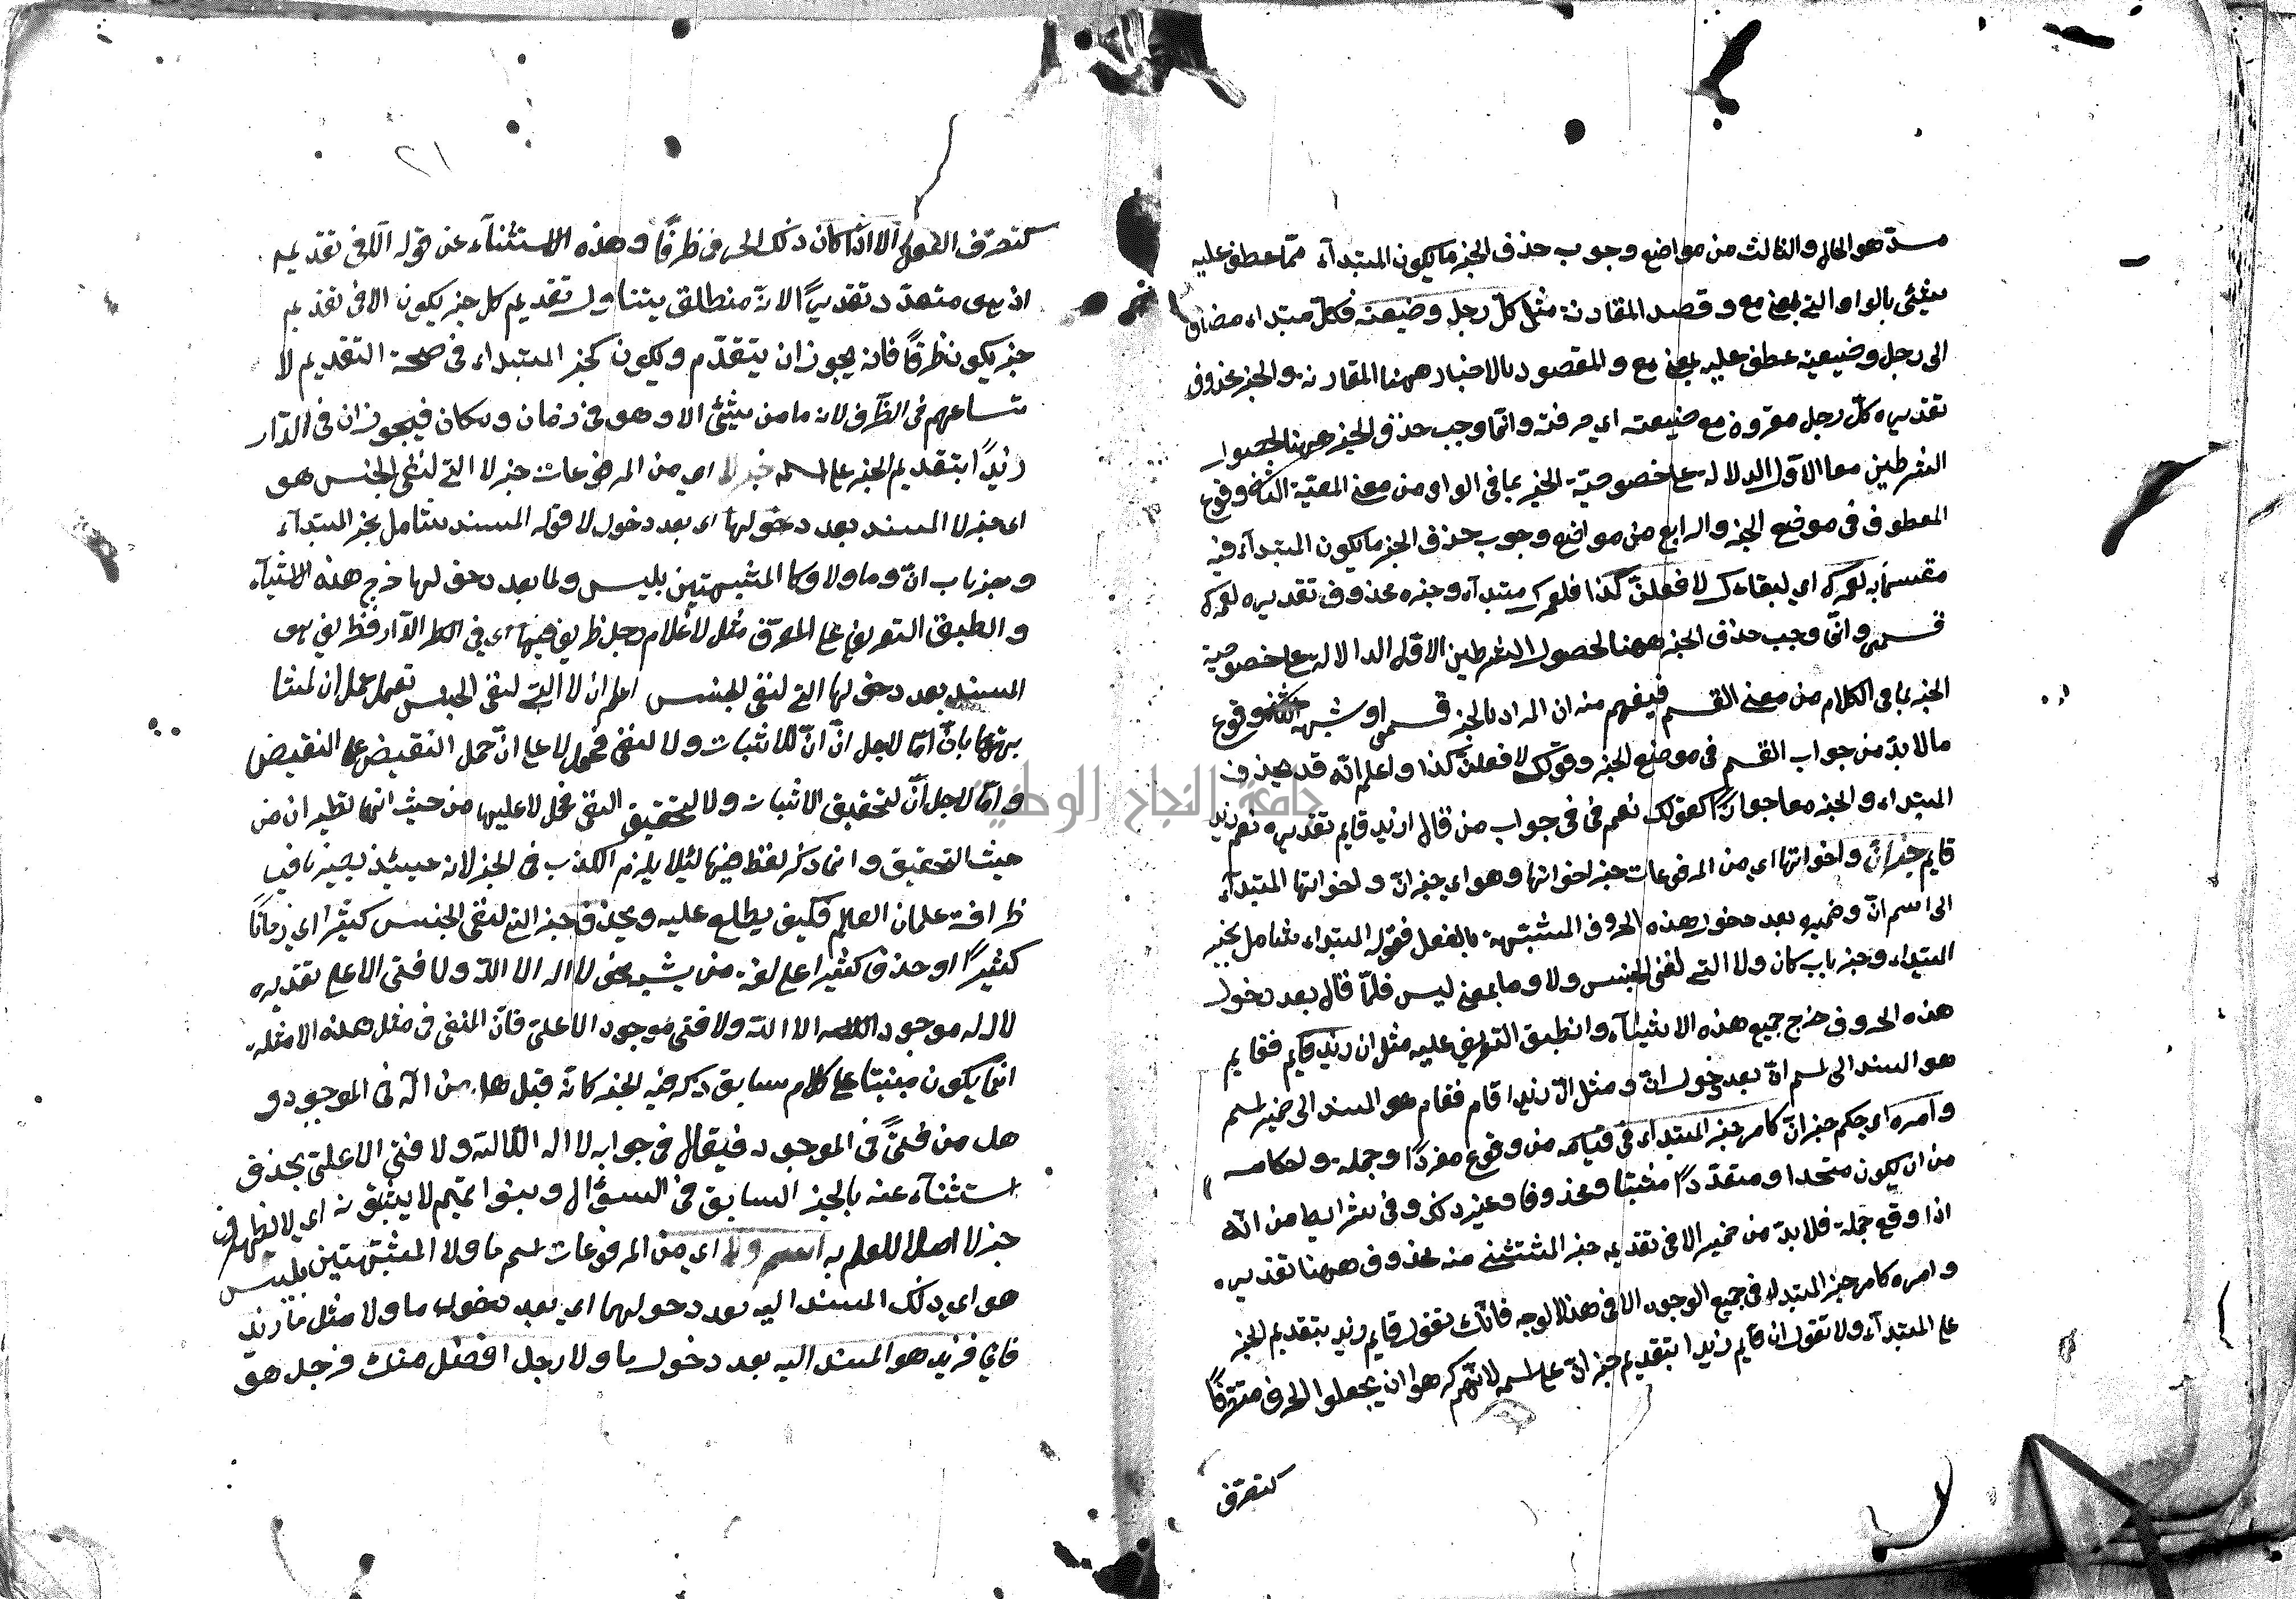 مسدّ هو الحال والثالث من مواضع وجوب حذف الخبر ما يكون المبتدآء ممّا عطف عليه
شئ بالواو التي بمعنى مع وقصد المقارنة مثل كلّ رجل وضيعته فكلّ مبتداء مضاف
الى رجل وضيعته عطف عليه بمعنى مع والمقصود بالاخبار ههنا المقارنة والخبر محذوف
تقديره كلّ رجل مقرون مع ضيعته اي حرفته وانّما وجب حذف الخبر ههنا لحصول
الشرطين معا الاوّل الدلالة على خصوصيّة الخبر بما في الواو من معنى المعيّة الثاني وقوع
المعطوف في موضع الخبر والرابع من مواضع وجوب حذف الخبر ما يكون المبتدآء فيه
مقسمًا به لعمرك اي لبقاءك لا فعلنّ كذا فلعمرك مبتدآء وخبره محذوف تقديره لعمرك
قسمي وانّما وجب حذف الخبر ههنا لحصول الشرطين الاوّل الدلالة على خصوصية
الخبر بما في الكلام من معنى القسم فيفهم منه ان المراد بالخبر قسمي او شبهه الثاني وقوع
مالا بدّ من جواب القسم في موضع الخبر وقولك لا فعلنّ كذا واعلم انّه قد يحذف
المبتداء والخبر معا جوازًا كقولك نعم في جواب من قال ازيد قايم تقديره نعم زيد
قايم خبر انّ واخواتها اي من المرفوعات خبر اخواتها وهو اي خبر انّ واخواتها المبتدآء
الى اسم انّ وضميره بعد دخول هذه الحروف المشبّهة بالفعل فقوله المبتداء شامل بخبر
المبتداء وخبر باب كان ولا التي لنفى الجنس ولا وما بمعنى ليس فلمّا قال بعد دخول
هذه الحروف خرج جميع هذه الاشيآء وانطبق التعريف عليه مثل ان زيدا قايم فقايم
هو المسند الى اسم انّ بعد دخول انّ ومثل انّ زيدا قام فقام هو المسند الى ضمير اسم
وامره اى حكم خبر انّ كامر خبر المبتداء في من وقوع مفردًا وجملة واحكامه
من ان يكون متحدا ومتعدّدًا مثبتا ومحذوفا وغير ذلك وفي شرايط من انّه
اذا وقع جملة فلا بدّ من ضمير الا في تقديمه خبر المستثنى منه محذوف ههنا تقديره
وامره كامر خبر المبتداء في جميع الوجوه الا في هذا الوجه فانّك تقول قايم زيد بتقديم الخبر
على المبتدآء ولا تقول ان قايم زيدا بتقديم خبر انّ على اسمه لانّهم كرهوا ان يجعلوا الحرف متصرّفًا
كتصرّف
٢١
كتصرّف الفعل الا اذا كان ذلك الحرف ظرفًا وهذه الاستثنآء عن قوله الّا في تقديم
اذ هو متعدّد تقديرًا لانه منطلق يتناول تقديم كل خبر يكون الا في تقديم
خبر يكون ظرفًا فانه يجوز ان يتقدّم ويكون كخبر المبتداء في صحة التقديم لا
تساعهم في الظّرف لانه ما من شئ الا وهو في زمان ومكان فيجوز ان في الدّار
زيدًا بتقديم الخبر على اسمه خبر لا اي من المرفوعات خبر لا التي لنفي الجنس هو
اى خبر لا المسند بعد دخولها اى بعد دخول لا قوله المسند شامل بخبر المبتدآء
وبخبر باب انّ وما ولا المشبهتين بليس ولما بعد دخولها خرج هذه الاشيآء
وانطبق التعريف على المعرّف مثل لا غلام رجل ظريف فيها اى في الدّار فظريف هو
المسند بعد دخولها التي لنفى الجنس اعلم ان لا التي لنفى الجنس تعمل عمل ان لمشا
بهتها بانّ امّا لاجل انّ انّ للاثبات ولا لنفى فحمل لا على انّ حمل النقيض على النقيض
وامّا لاجل انّ لتحقيق الاثبات ولا لتحقيق النفى فحمل لا عليها من حيث انها نظير ان من
حيث التحقيق وانما ذكر لفظ فيها لئلا يلزم الكذب في الخبر لانه حينئذ
ظرافة غلمان العالم فكيف يطلع عليه ويحذف خبر التي لنفى الجنس كثيرًا اى زمانًا
كثيرًا او حذف كثيرا على لغة من نحو لا اله الا اللّه ولا فتى الا على تقديره
لا اله موجود الا اللّه ولا فتى موجود الا علىّ فانّ المنفى في مثل هذه الامثلة
انما يكون مبنيّا على كلام سابق ذكر فيه الخبر كانّه قيل هل من اله في الموجود و
هل من فتىً في الموجود فيقال في جوابه لا اله الّا اللّه ولا فتى الا علىّ بحذف
استثنآء عنه بالخبر السابق في السؤال وبنوا تميم لا يثبتونه اي لا يظهرون
خبر لا اصلا للعلم به اسم ما ولا اي من المرفوعات اسم ما ولا المشبّهتين بليس
هو اى ذلك المسند اليه بعد دخولهما اى بعد دخول ما ولا مثل ما زيد
قايما فزيد هو المسند اليه بعد دخول ما ولا رجل افضل منك فرجل هو
جامعة النجاح الوطنية